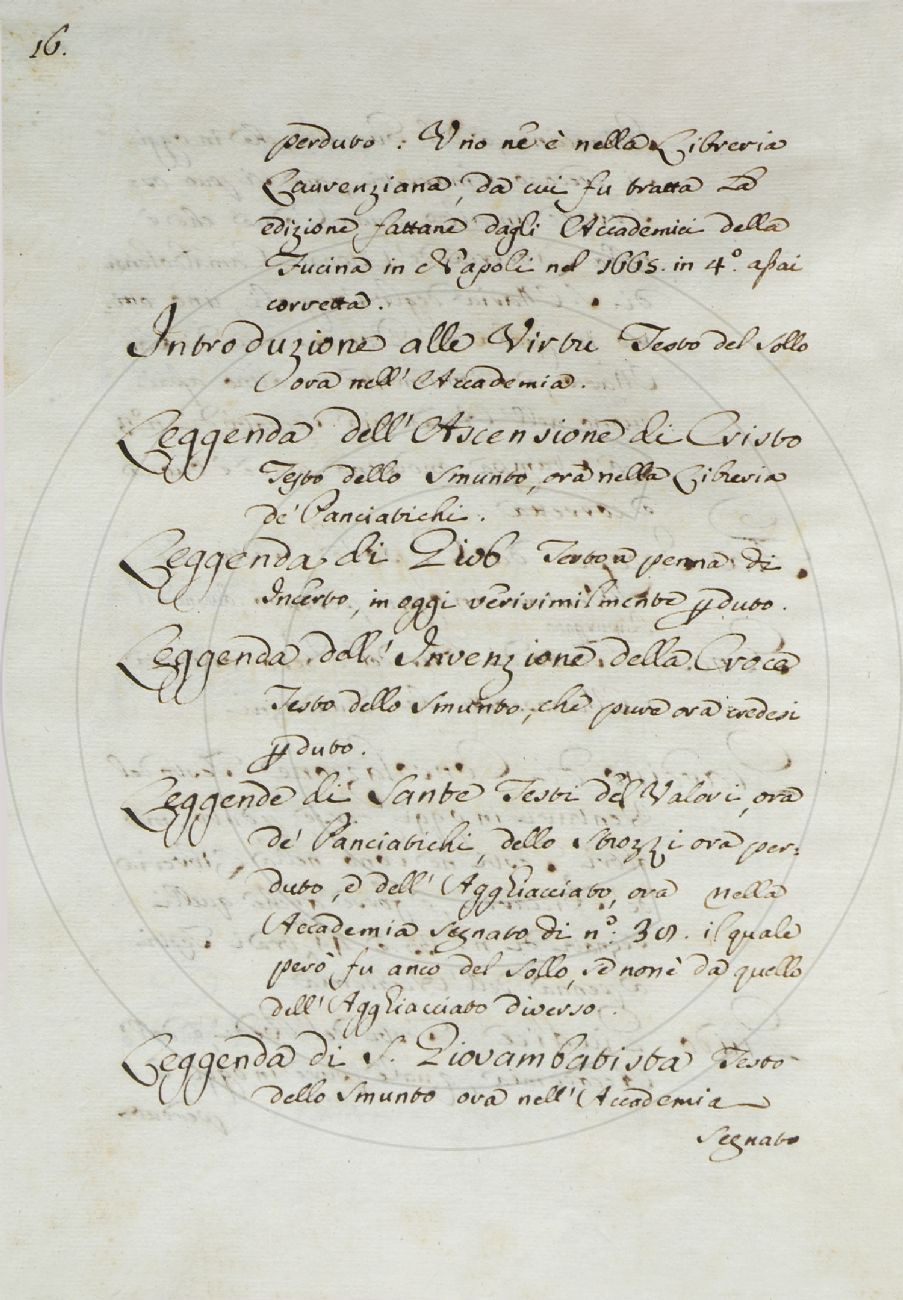 16.
perduto : Uno ne è nella Libreria
Laurenziana, da cui fu tratta La
edizione fattane dagli Accademici della
Fucina in Napoli nel 1665. in 4.º aſsai
corretta.
Introduzione alle Virtu Testo del Sollo
ora nell' Accademia.
Leggenda dell' Ascensione di Cristo
Testo dello Smunto, ora nella Libreria
de' Panciatichi.
Leggenda di Giob Testo a penna di
Incerto, in oggi verisimilmente ꝑduto.
Leggenda dell' Invenzione della Croce
Testo dello Smunto, che pure ora credesi
ꝑduto.
Leggende di Sante Testi del Valori, ora
de' Panciatichi, dello Strozzi ora per:
duto, e dell' Agghiacciato, ora nella
Accademia segnato di nº. 38. il quale
però fu anco del Sollo, se non è da quello
dell' Agghiacciato diverso.
Leggenda di S. Giovambatista Testo
dello Smunto ora nell' Accademia
Segnato